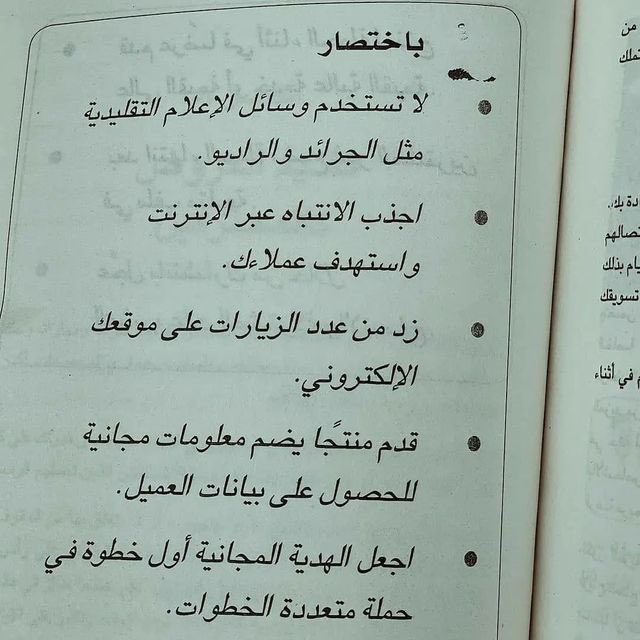 باختصار
لا تستخدم وسائل الإعلام التقليدية
مثل الجرائد والراديو.
اجذب الانتباه عبر الإنترنت
واستهدف عملاءك.
زد من عدد الزيارات على موقعك
الإلكتروني.
قدم منتجًا يضم معلومات مجانية
للحصول على بيانات العميل.
اجعل الهدية المجانية أول خطوة في
حملة متعددة الخطوات.
من
تصالهم
يام بذلك
تسويقك
في أثناء